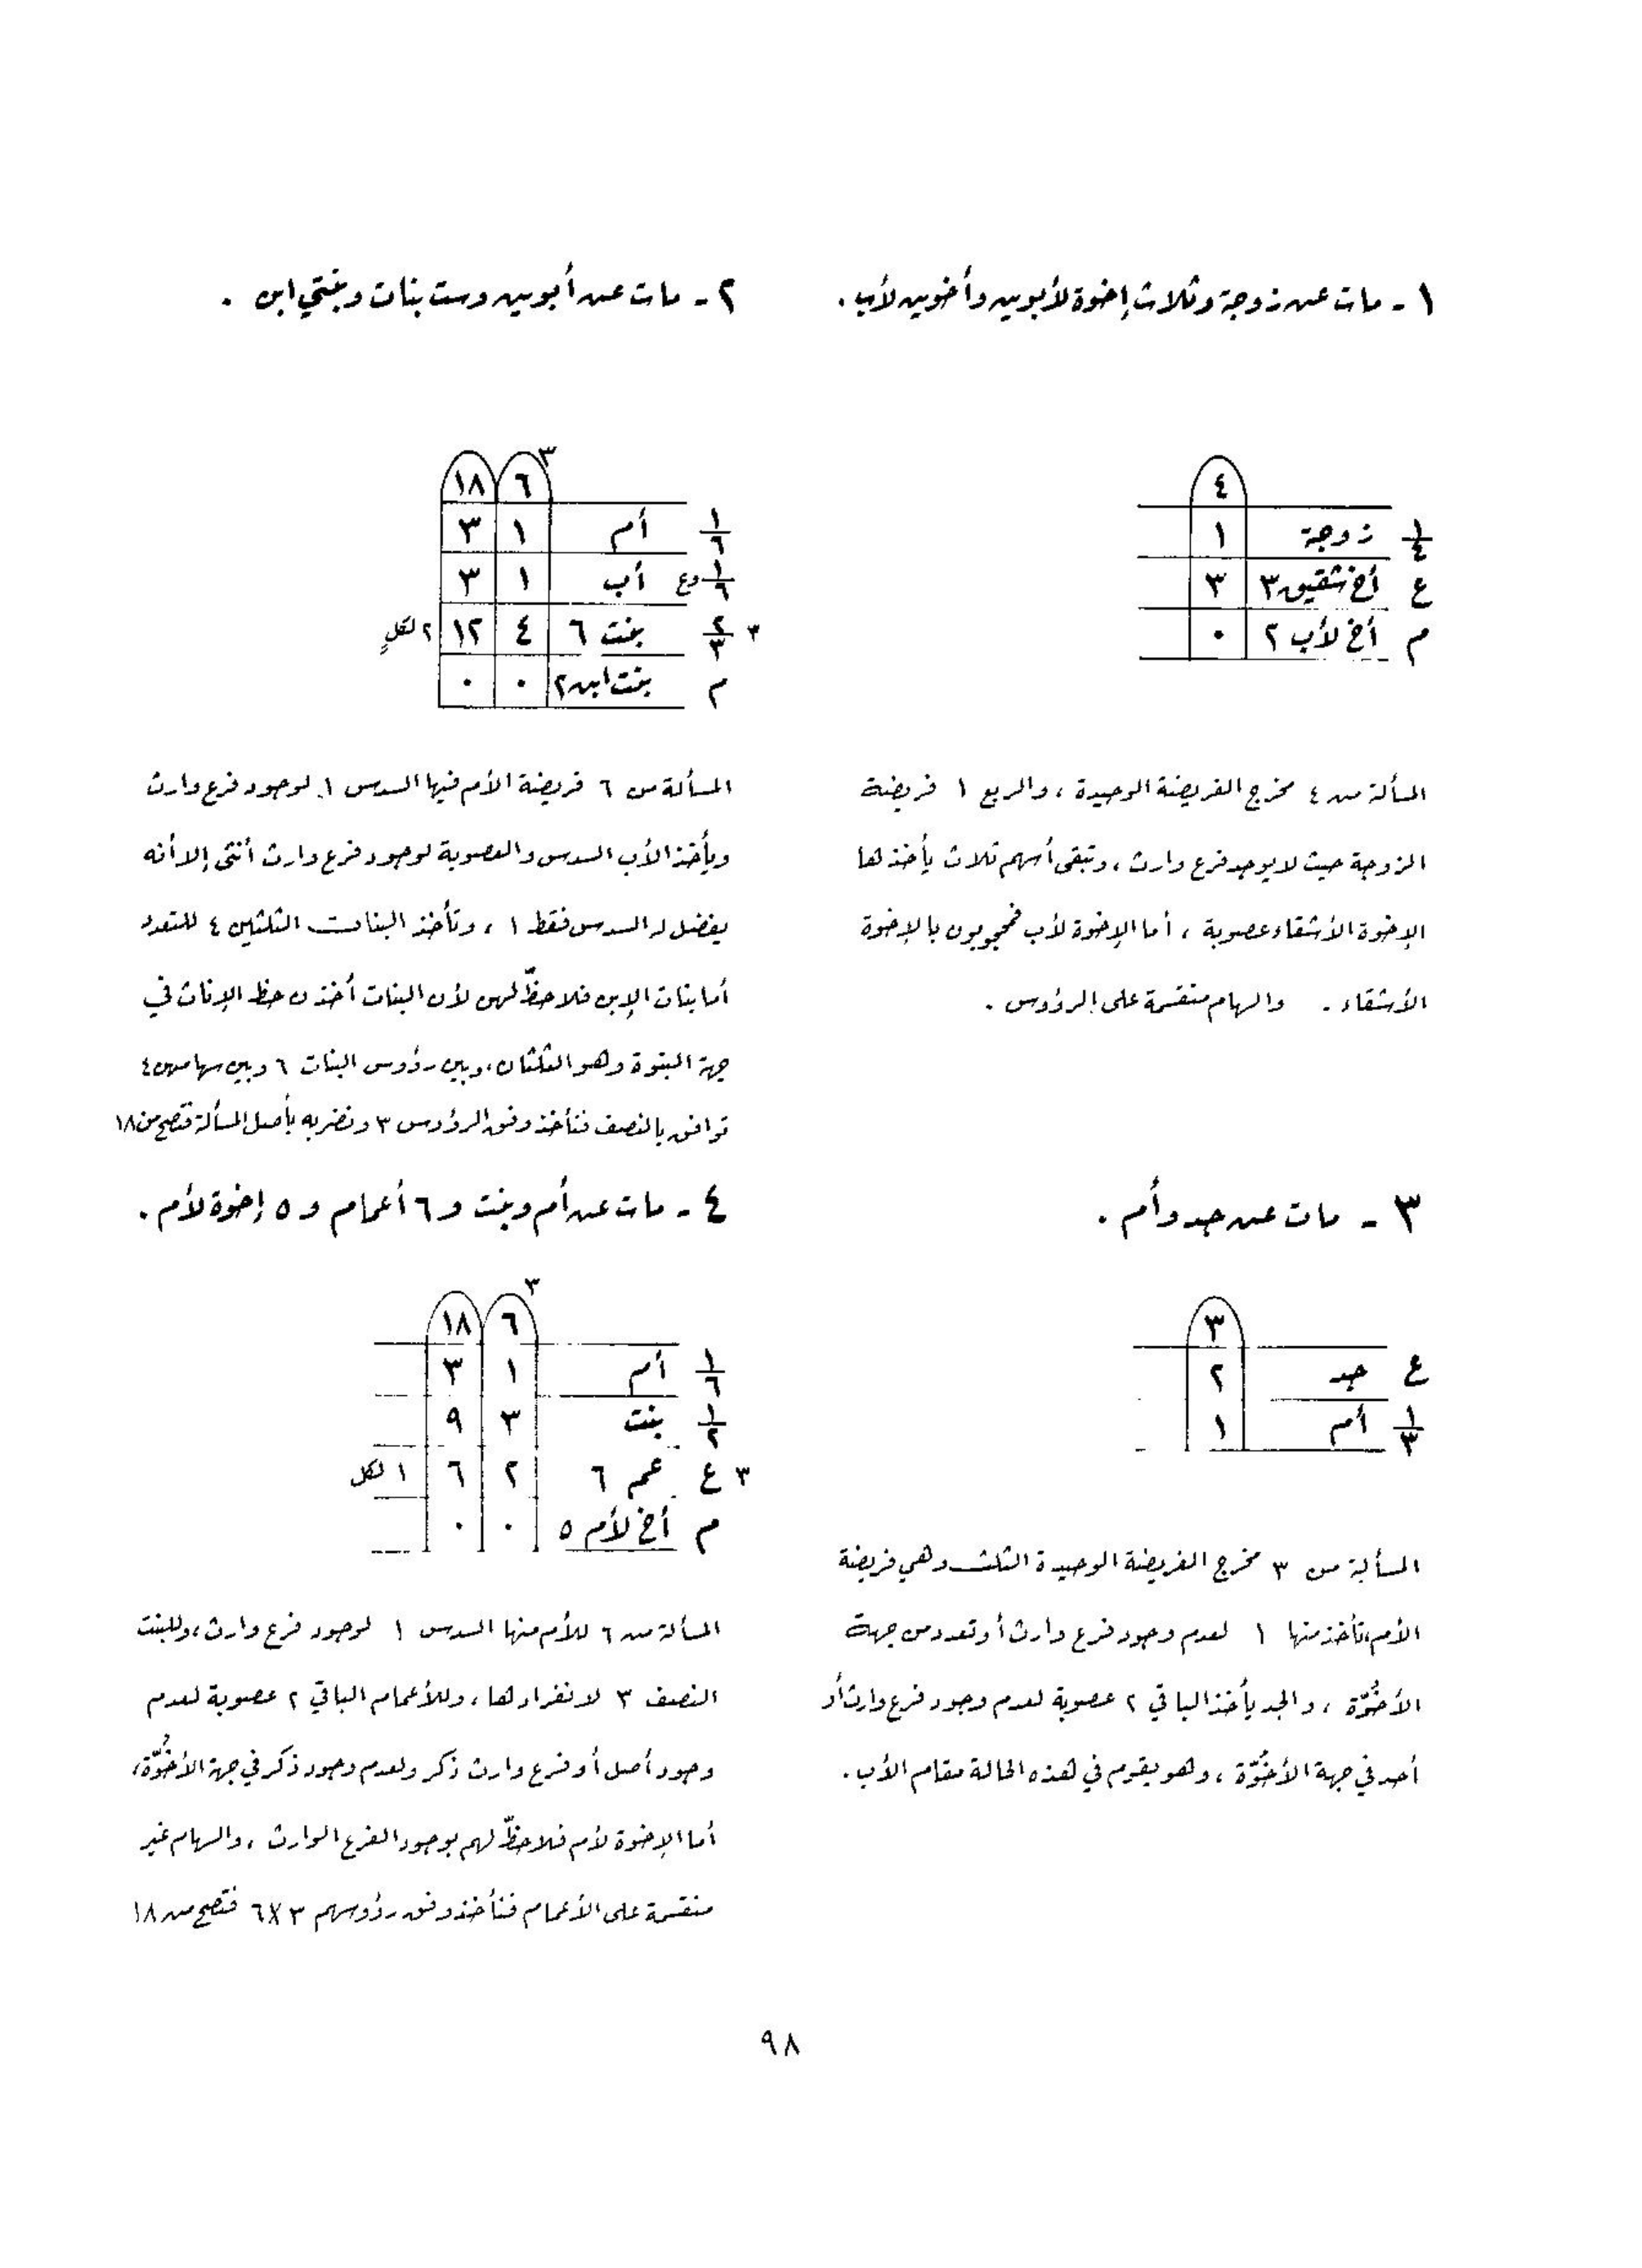 ١ - مات عن زوجة وثلاث إخوة لأبوين وأخوين لأب .
٤
١/٤ زوجة ١
ع أخ شقيق ٣ ٣
م أخ لأب ٢ ٠
المسألة من ٤ مخرج الفريضة الوحيدة ، والربع ١ فريضة
الزوجة حيث لا يوجد فرع وارث ، وتبقى أسهم ثلاث يأخذها
الإخوة الأشقاء عصوبة ، أما الإخوة لأب فمحجوبون بالإخوة
الأشقاء . والسهام منقسمة على الرؤوس .
٢ - مات عن أبوين وست بنات وبنتي ابن .
٣
٦ ١٨
١/٦ أم ١ ٣
١/٦ وع أب ١ ٣
٣ ٢/٣ بنت ٦ ٤ ١٢ ٢ لكلٍ
م بنت ابن ٢ ٠ ٠
المسألة من ٦ فريضة الأم فيها السدس ١ لوجود فرع وارث
ويأخذ الأب السدس والعصوبة لوجود فرع وارث أنثى إلا أنه
يفضل له السدس فقط ١ ، وتأخذ البنات الثلثين ٤ للتعدد
أما بنات الإبن فلا حظّ لهن لأن البنات أخذن حظ الإناث في
جهة البنوة وهو الثلثان ، وبين رؤوس البنات ٦ وبين سهامهن ٤
توافق بالنصف فنأخذ وفق الرؤوس ٣ ونضربه بأصل المسألة فتصح من ١٨
٣ - مات عن جد وأم .
٣
ع جد ٢
١/٣ أم ١
المسألة من ٣ مخرج الفريضة الوحيدة الثلث وهي فريضة
الأم ، تأخذ منها ١ لعدم وجود فرع وارث أو تعدد من جهة
الأخُوّة ، والجد يأخذ الباقي ٢ عصوبة لعدم وجود فرع وارث أو
أحد في جهة الأخُوّة ، وهو يقوم في هذه الحالة مقام الأب .
٤ - مات عن أم وبنت و ٦ أعمام و ٥ إخوة لأم .
٣
٦ ١٨
١/٦ أم ١ ٣
١/٢ بنت ٣ ٩
٣ ع عم ٦ ٢ ٦ ١ لكل
م أخ لأم ٥ ٠ ٠
المسألة من ٦ للأم منها السدس ١ لوجود فرع وارث ، وللبنت
النصف ٣ لانفرادها ، وللأعمام الباقي ٢ عصوبة لعدم
وجود أصل أو فرع وارث ذكر ولعدم وجود ذكر في جهة الأخُوّة ،
أما الإخوة لأم فلا حظّ لهم بوجود الفرع الوارث ، والسهام غير
منقسمة على الأعمام فنأخذ وفق رؤوسهم ٣ × ٦ فتصح من ١٨
٩٨